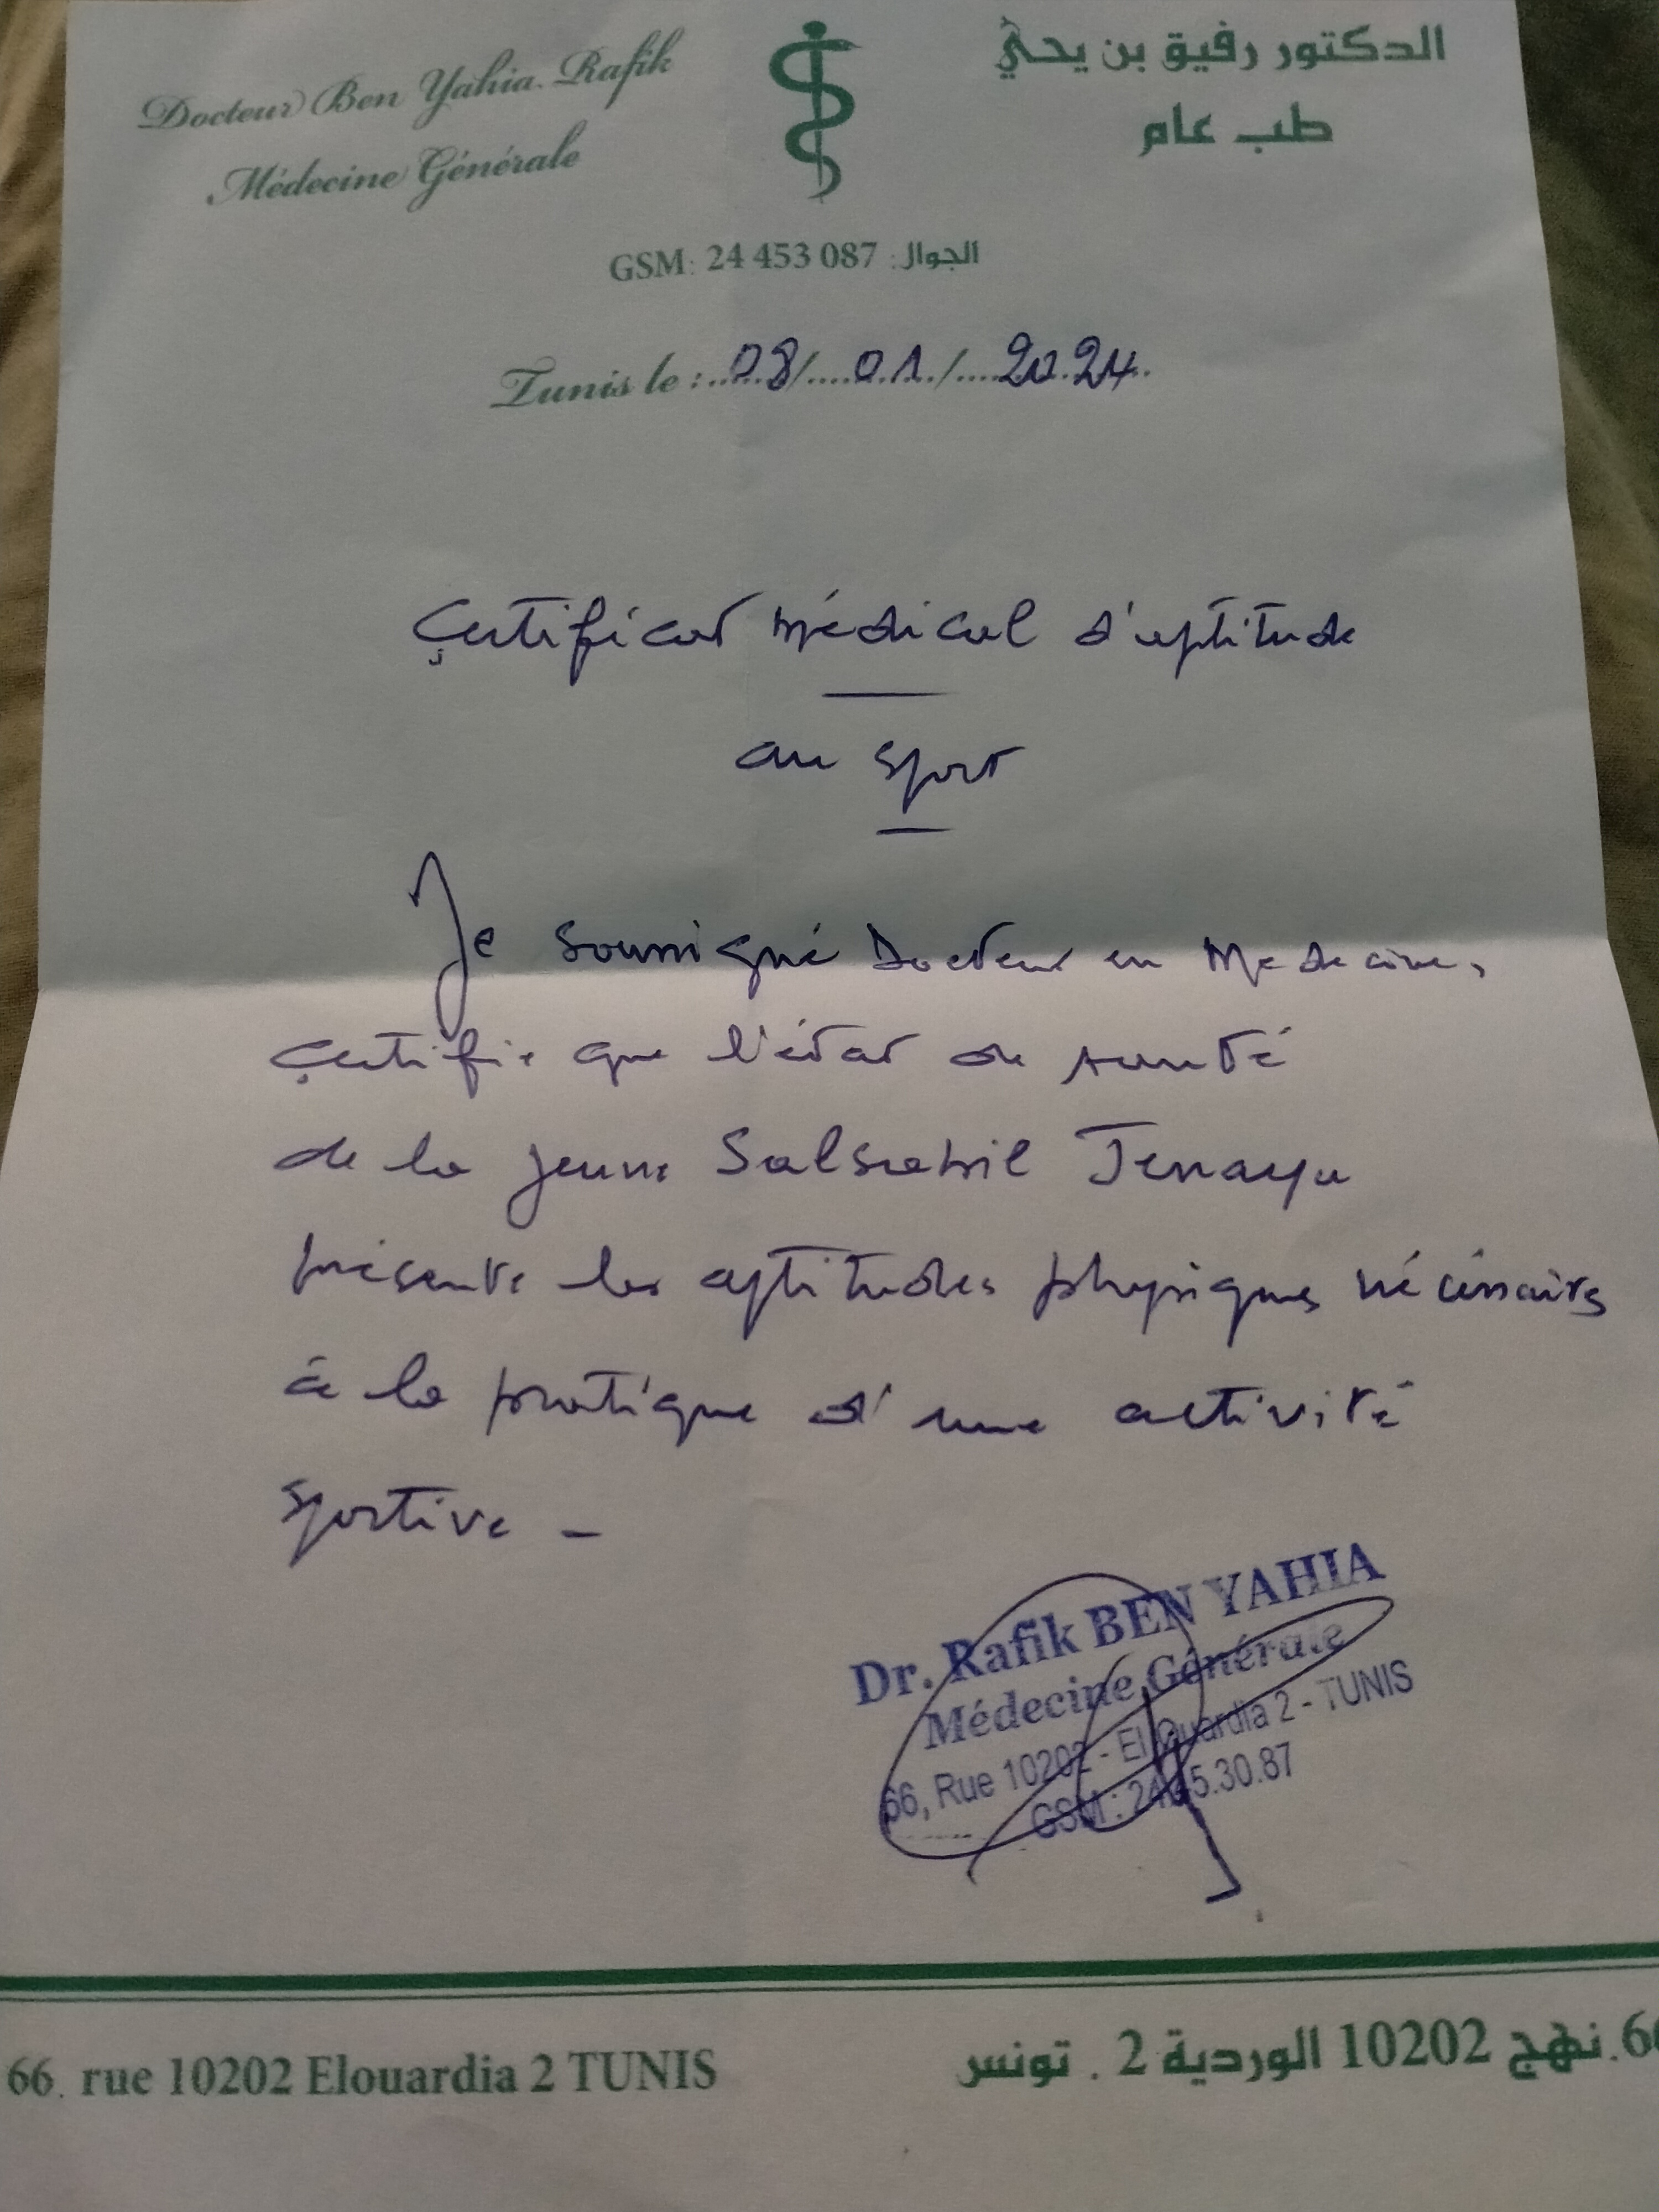 Docteur Ben Yahia Rafik
Médecine Générale
الدكتور رفيق بن يحي
طب عام
GSM: 24 453 087 :الجوال
Tunis le : 08/ 01/ 2024
Certificat médical d'aptitude
au sport
Je soussigné Docteur en Medecine,
certifie que l'état de santé
de la jeune Salsabil
présente les aptitudes physiques nécéssaires
à la pratique d'une activité
sportive -
Dr. Rafik BEN YAHIA
Médecine Générale
66, Rue 10202 - El Ouardia 2 - TUNIS
GSM : 24.45.30.87
66. rue 10202 Elouardia 2 TUNIS
66. نهج 10202 الوردية 2 . تونس